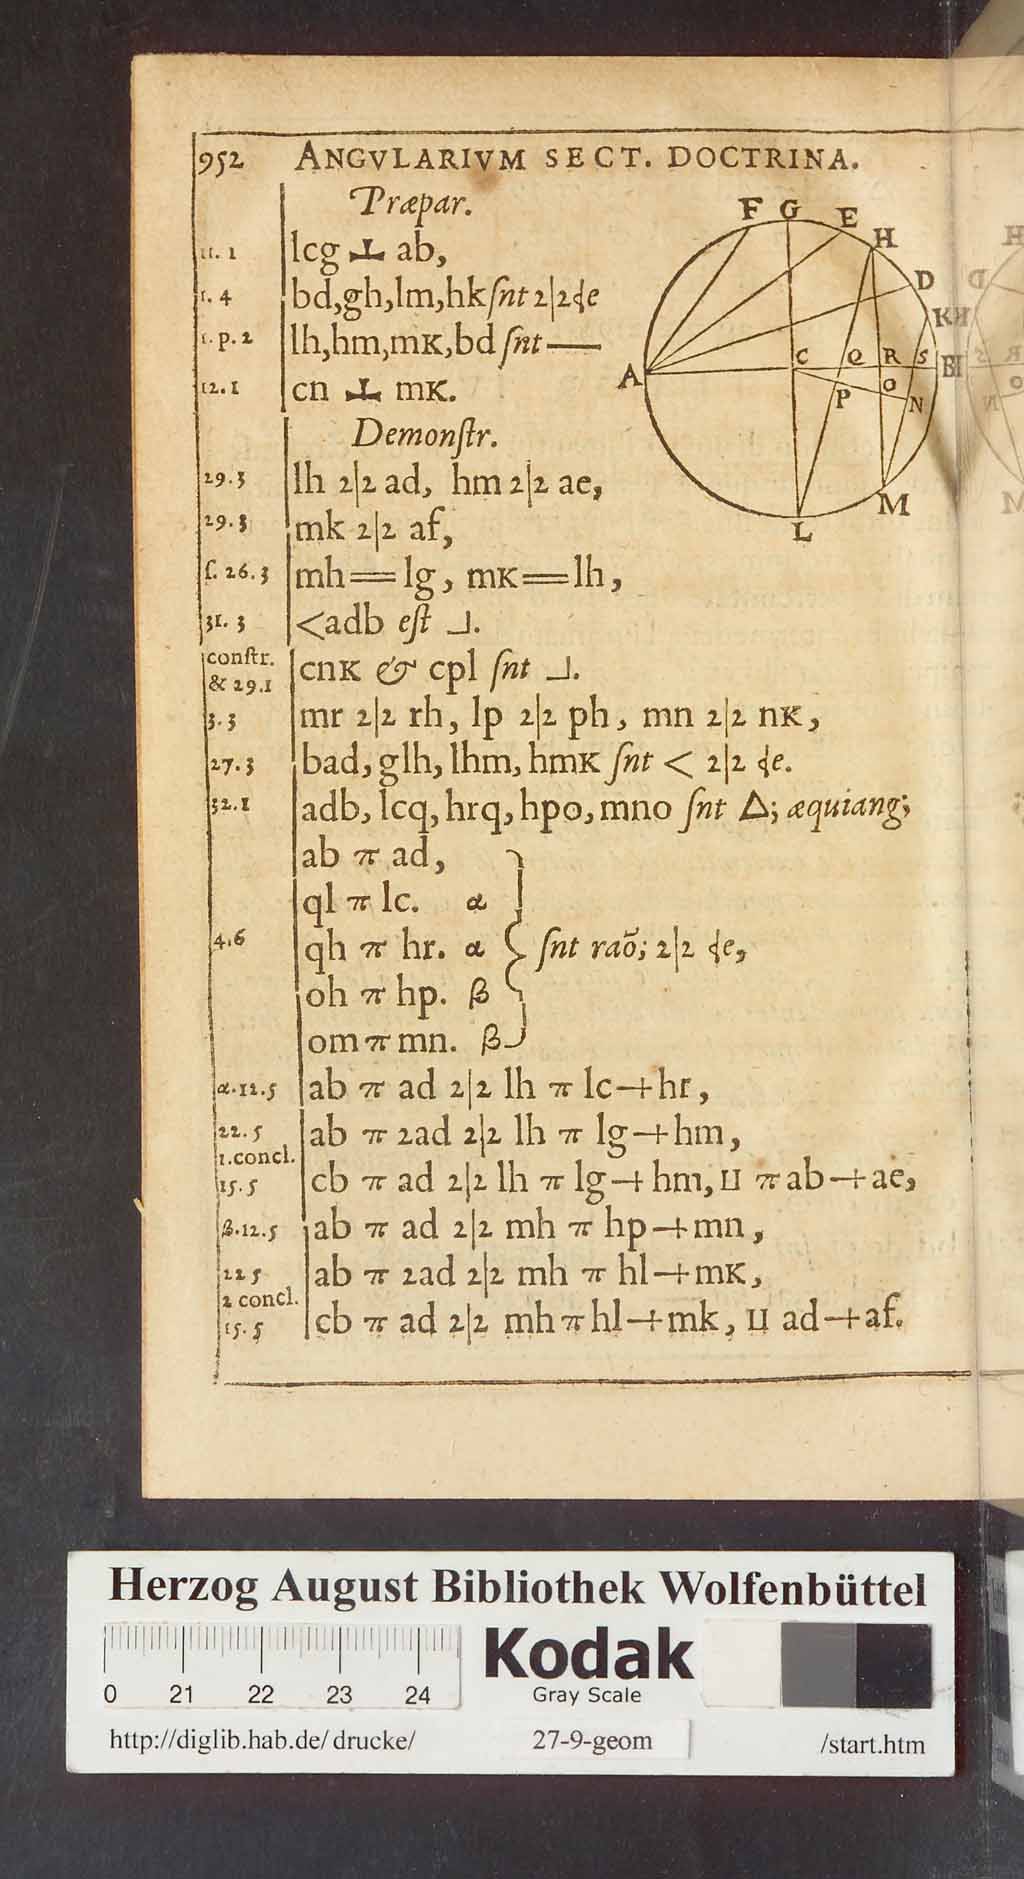 952 ANGVLARIVM SECT. DOCTRINA.
Præpar.
11. 1 lcg ⊥ ab,
1. 4 bd,gh,lm,hk ſnt 2|2 ɖe
1. p. 2 lh,hm,mK,bd ſnt —
12.1 cn ⊥ mK.
Demonſtr.
29.3 lh 2|2 ad, hm 2|2 ae,
29.3 mk 2|2 af,
ſ. 26.3 mh == lg, mK == lh,
31. 3 <adb eſt ⅃.
conſtr.
& 29.1 cnK & cpl ſnt ⅃.
3.3 mr 2|2 rh, lp 2|2 ph, mn 2|2 nK,
27.3 bad, glh, lhm, hmK ſnt < 2|2 ɖe.
32.1 adb, lcq, hrq, hpo, mno ſnt Δ; æquiang;
ab π ad,
ql π lc. α
4.6 qh π hr. α ſnt raõ; 2|2 ɖe,
oh π hp. β
om π mn. β
α.12.5 ab π ad 2|2 lh π lc + hr,
22.5 ab π 2ad 2|2 lh π lg + hm,
1.concl.
15.5 cb π ad 2|2 lh π lg + hm, ⊔ π ab + ae,
β.12.5 ab π ad 2|2 mh π hp + mn,
22 5 ab π 2ad 2|2 mh π hl + mK,
2 concl.
15.5 cb π ad 2|2 mh π hl + mk, ⊔ ad + af.
F G E H D K A C Q R S B O P N M L
Herzog August Bibliothek Wolfenbüttel
0 21 22 23 24
Kodak
Gray Scale
http://diglib.hab.de/drucke/ 27-9-geom /start.htm